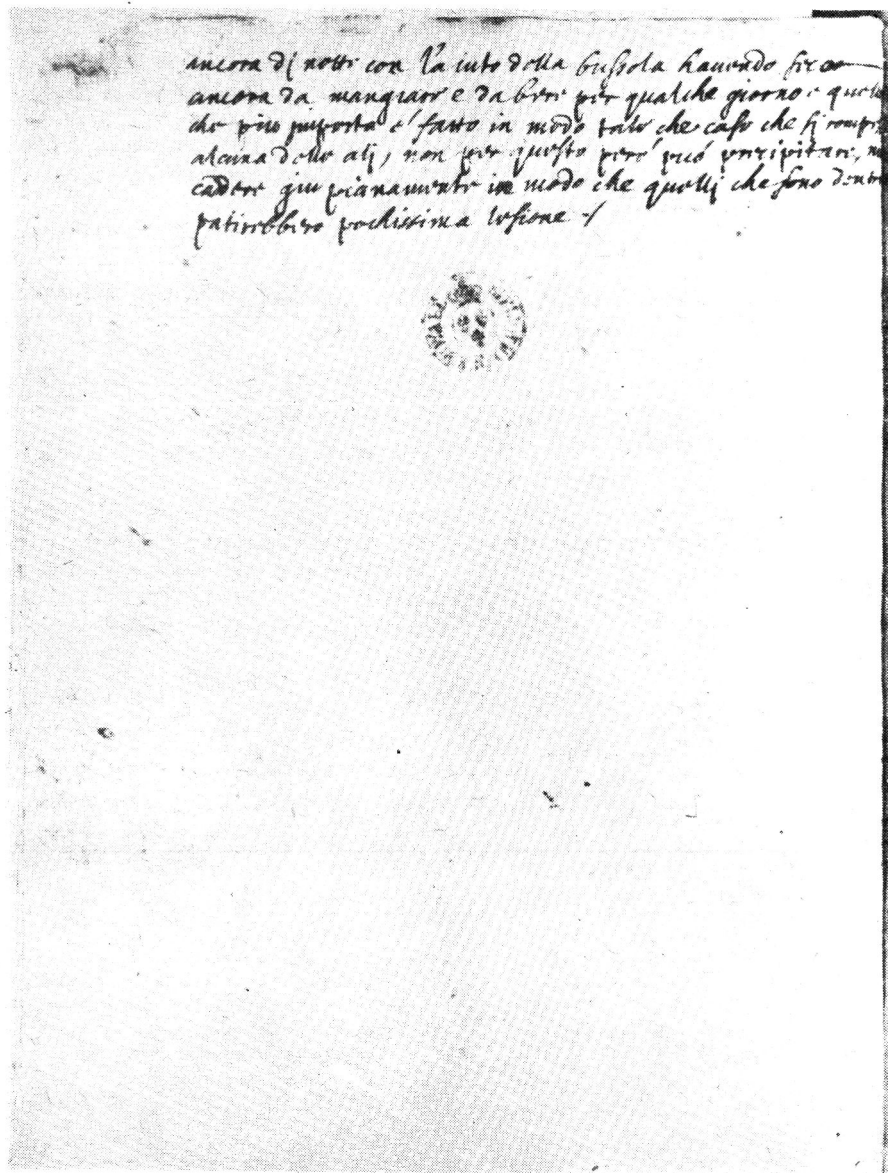 ancora dj notte con l'aiuto della bussola havendo seco
ancora da mangiare e da bere per qualche giorno e quelo
che più importa e' fatto in modo tale che caso che sj rompes
alcuna delle alj, non per questo però può precipitare, m
cadere giu pianamente in modo che quellj che sono dentro
patirebbero pochissima lesione